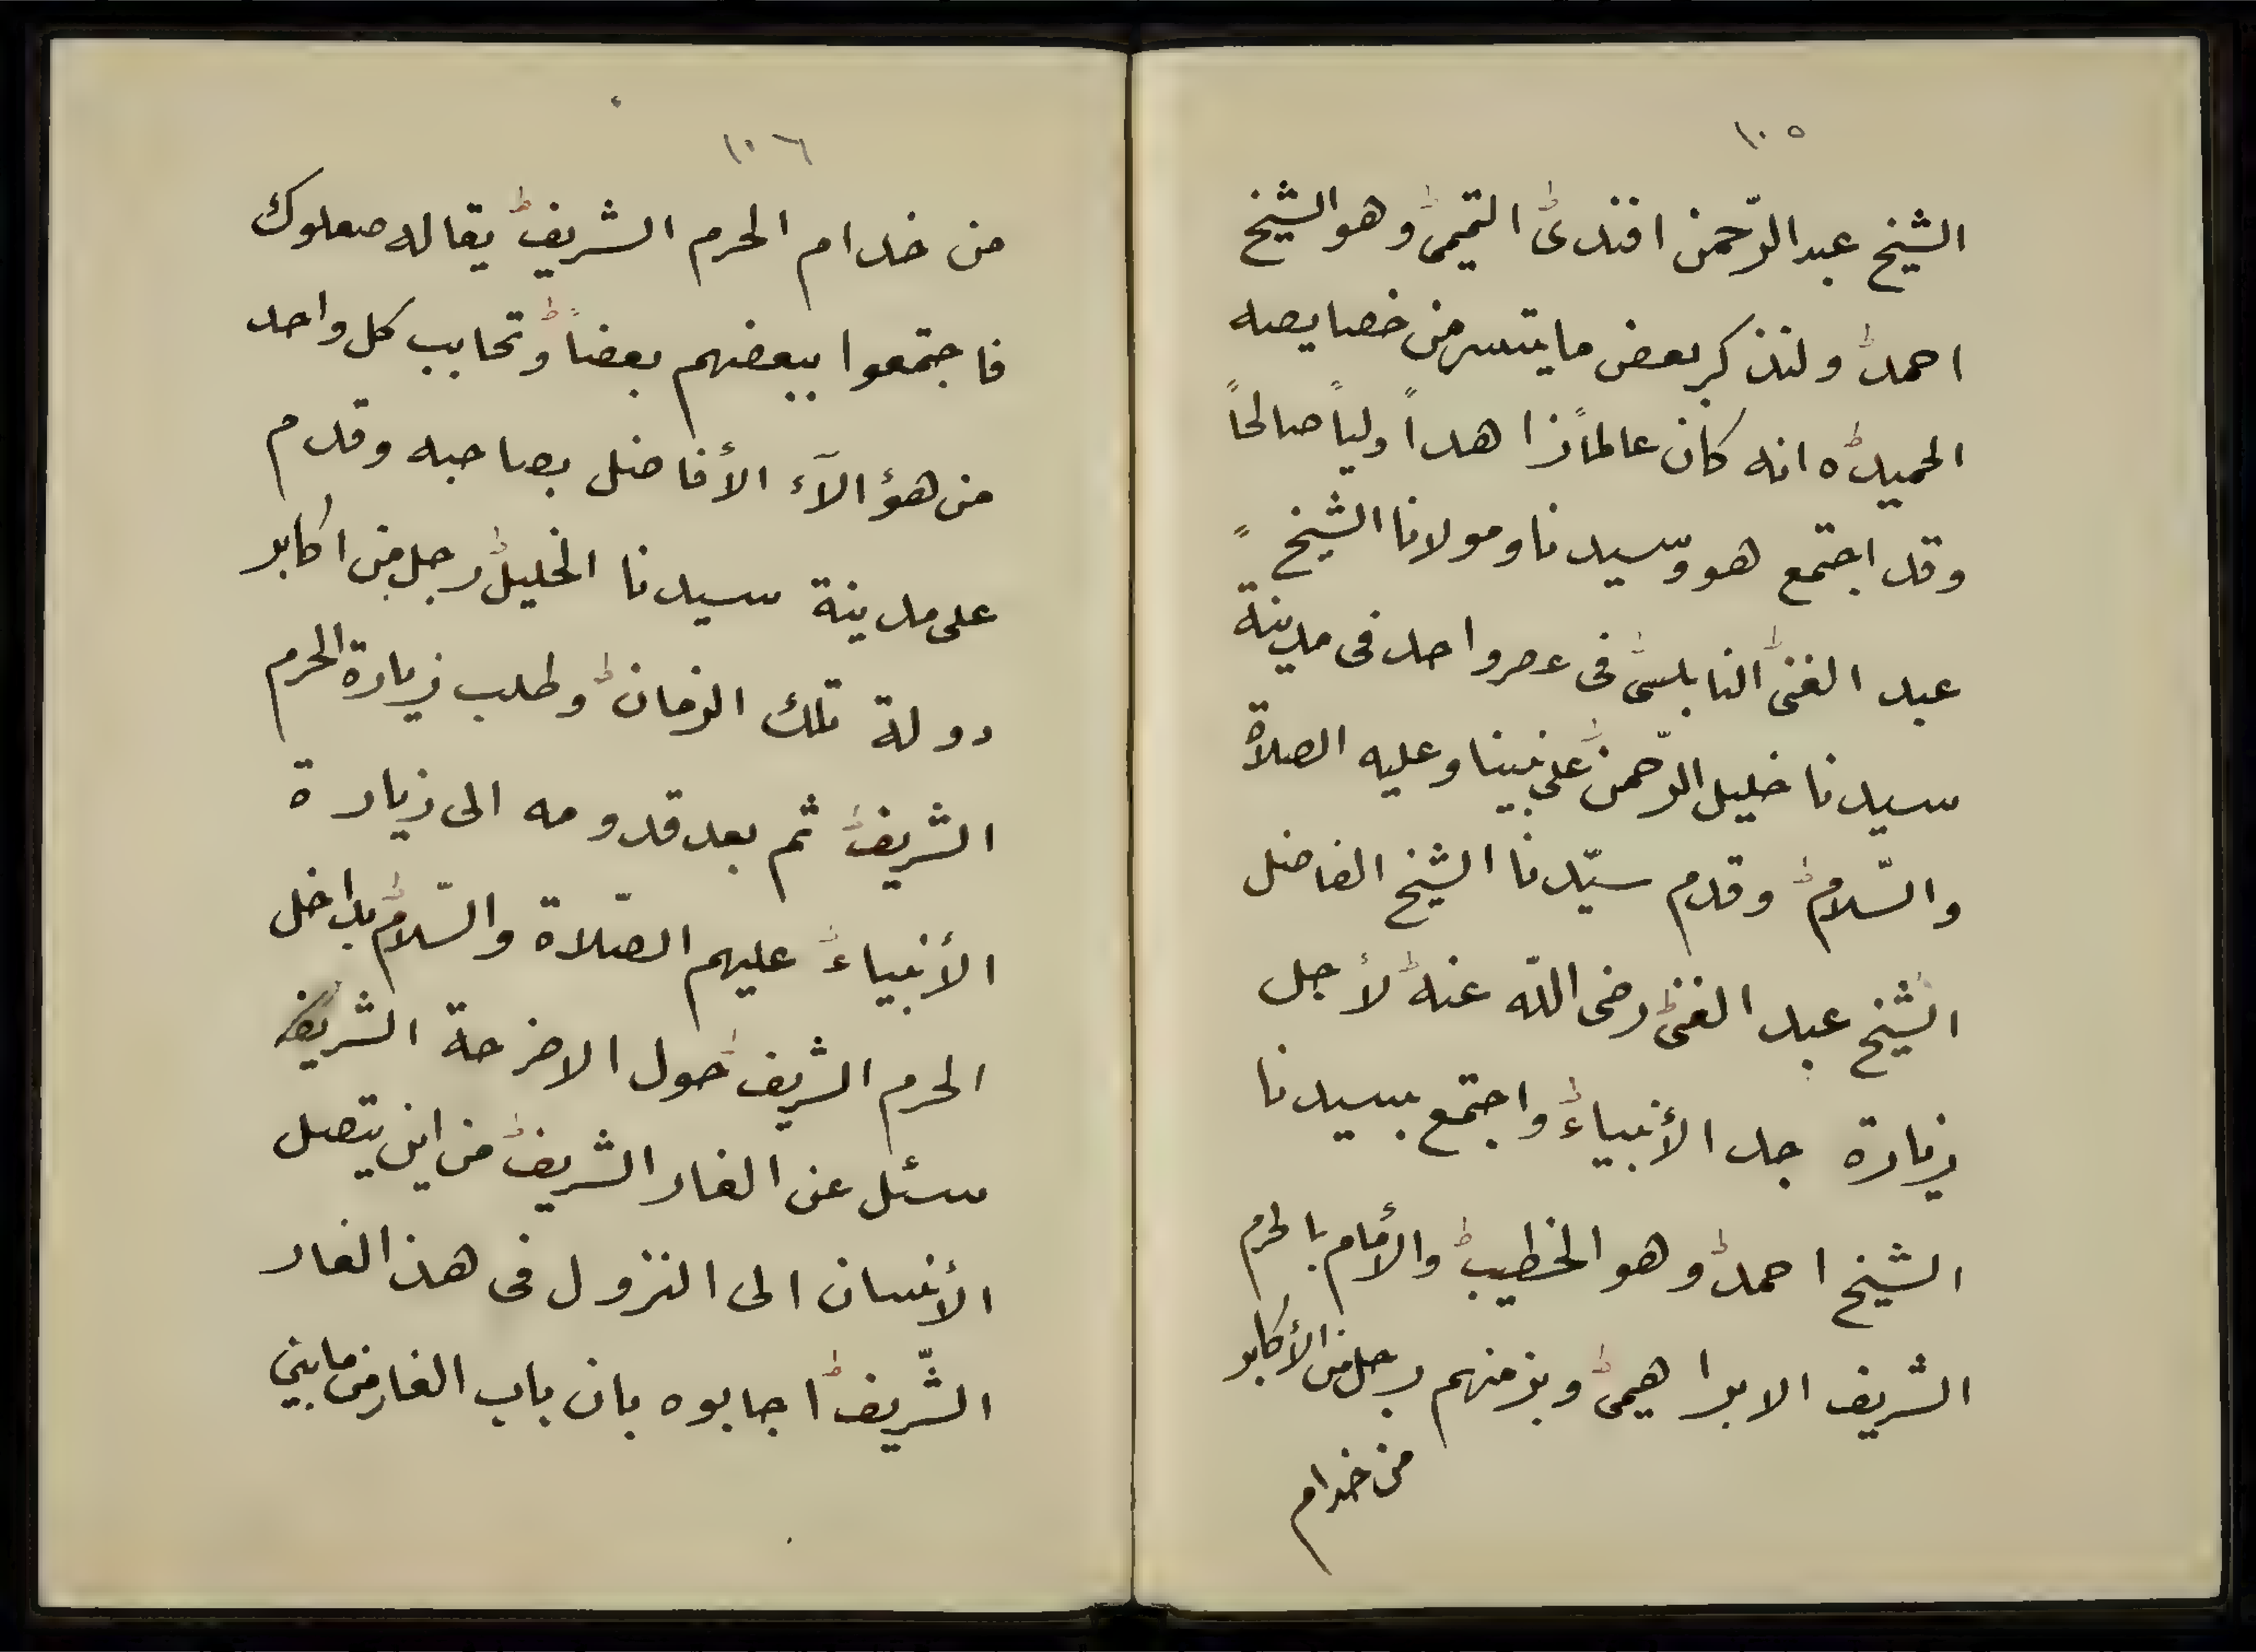 ١٠٥
الشيخ عبد الرّحمن افندى التميمى وهو الشيخ
احمد ولنذكر بعض ما يتسر من خصايصه
الحميده انه كان عالماً زاهداً ولياً صالحاً
وقد اجتمع هو وسيدنا ومولانا الشيخ
عبد الغنى النابلسى فى عصر واحد فى مدينة
سيدنا خليل الرّحمن على نبينا وعليه الصلاة
والسّلام وقدم سيّدنا الشيخ الفاضل
الشيخ عبد الغنى رضى اللّه عنه لأجل
زيارة جد الأنبياء واجتمع بسيدنا
الشيخ احمد وهو الخطيب والأمام بالحرم
الشريف الابراهيمى وبزمنهم رجل من الأكابر
من خدام
١٠٦
من خدام الحرم الشريف يقال له صعلوك
فاجتمعوا ببعضهم بعضاً وتحابب كل واحد
من هؤالآء الأفاضل بصاحبه وقدم
على مدينة سيدنا الخليل رجل من اكابر
دولة تلك الزمان وطلب زيارة الحرم
الشريف ثم بعد قدومه الى زيارة
الأنبياء عليهم الصّلاة والسّلام بداخل
الحرم الشريف حول الاضرحة الشريفه
سئل عن الغار الشريف من اين يتصل
الأنسان الى النزول فى هذ الغار
الشّريف اجابوه بان باب الغار من مابين